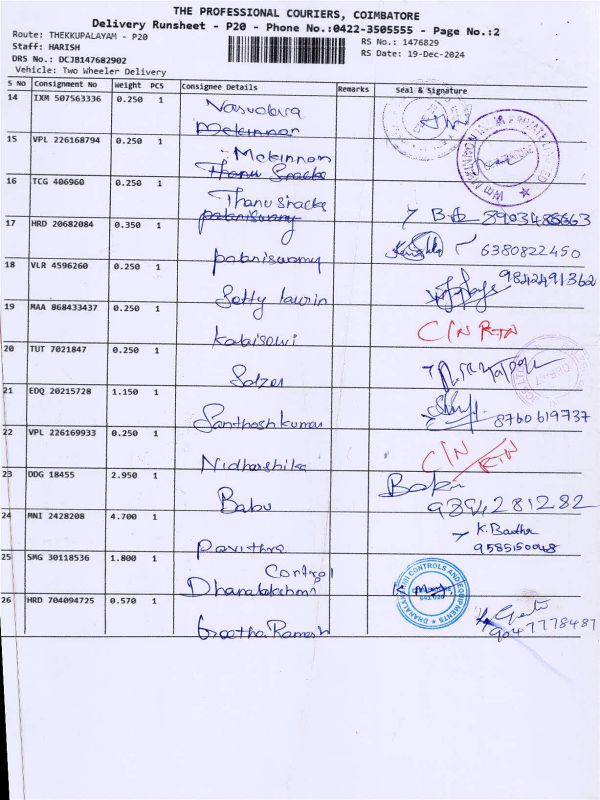 THE PROFESSIONAL COURIERS, COIMBATORE
Delivery Runsheet - P20 - Phone No.:0422-3505555 - Page No.:2
Route: THEKKUPALAYAM - P20
RS No.: 1476829
Staff: HARISH
RS Date: 19-Dec-2024
DRS No.: DCJB147682902
Vehicle: Two Wheeler Delivery
S No Consignment No Weight PCS Consignee Details Remarks Seal & Signature
14 IXM 507563336 0.250 1 Vasudeva
Mckinnon
15 VPL 226168794 0.250 1
Mckinnon
Thanu Snacks
16 TCG 406960 0.250 1
Thanu snacks
palaniswamy
17 HRD 20682084 0.350 1
palaniswamy 6380822450
18 VLR 4596260 0.250 1 9842491362
Setty laurin
19 MAA 868433437 0.250 1 C/N RTN
Kalaiselvi
20 TUT 7021847 0.250 1
Solzer
21 EDQ 20215728 1.150 1
Santhosh kumar 8760619737
22 VPL 226169933 0.250 1 C/N RTN
Nidharshika
23 DDG 18455 2.950 1
Babu 9894281282
24 MNI 2428208 4.700 1
Pavithra 9585150048
25 SMG 30118536 1.800 1
Control
Dhanalakshmi
DHANALAKSHMI CONTROLS AND EQUIPMENTS
26 HRD 704094725 0.570 1
Geetha Ramesh 9047778487